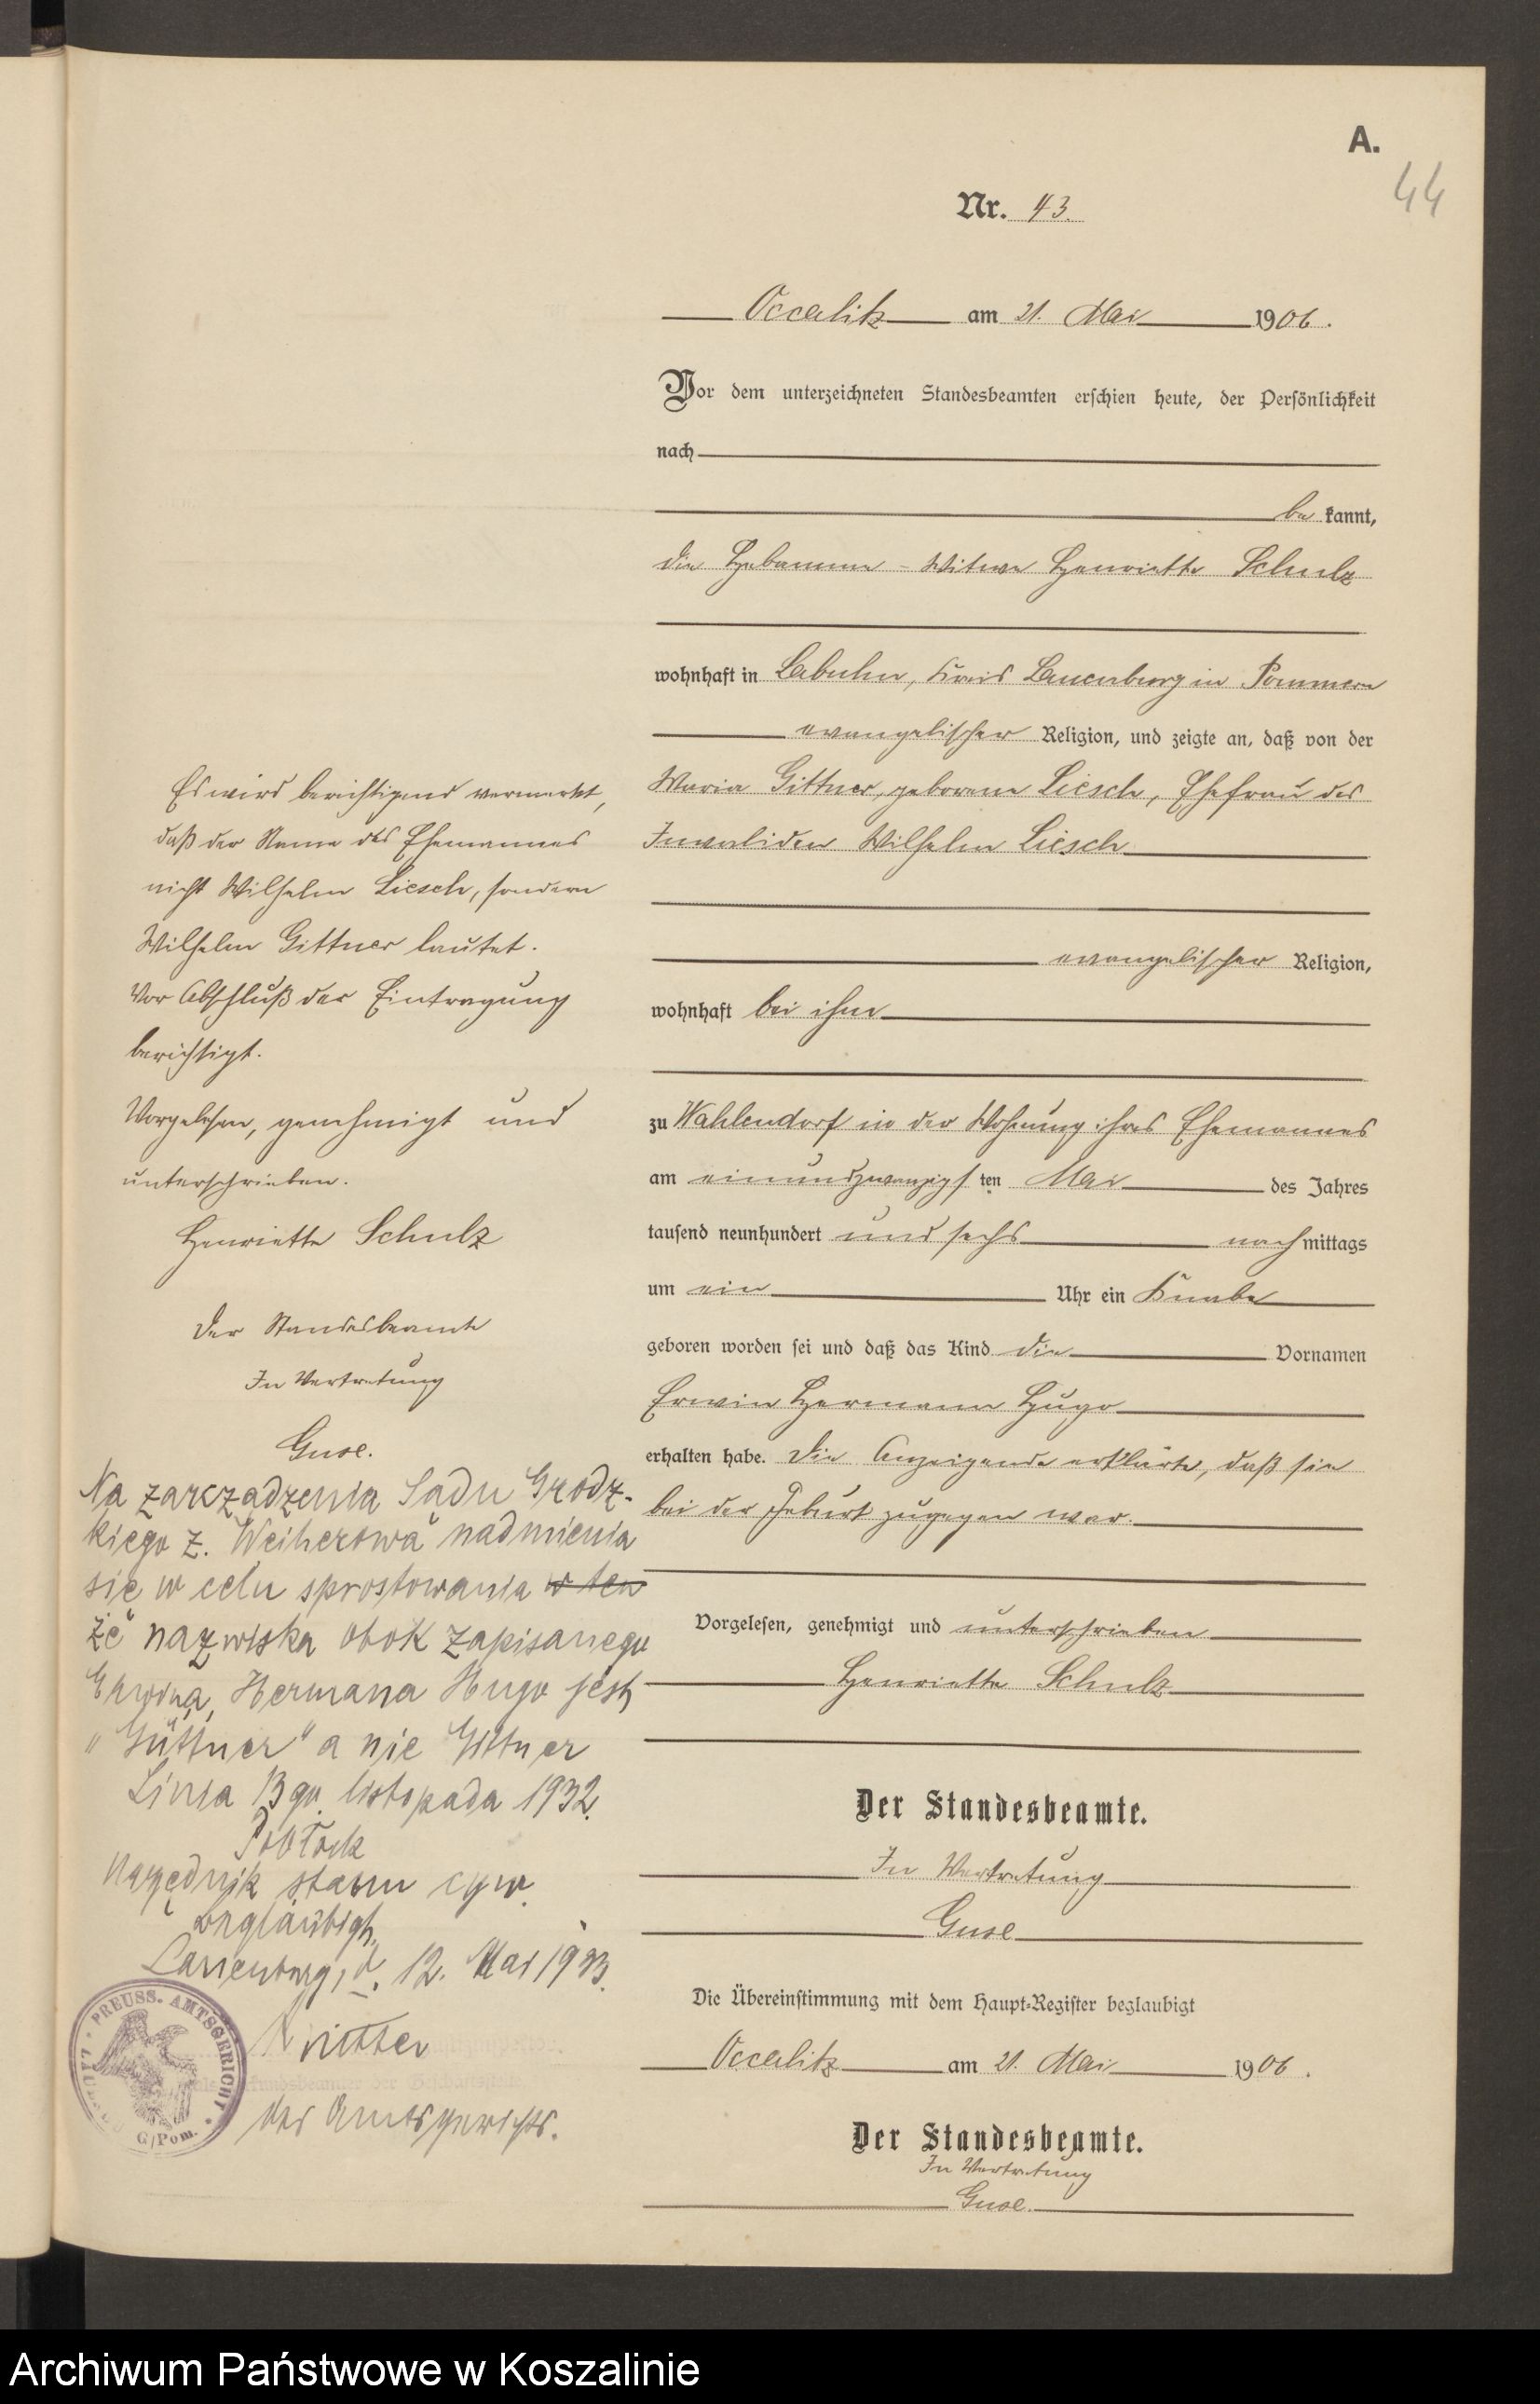 A.
44
Nr. 43.
Occalitz am 21. Mai 1906.
Vor dem unterzeichneten Standesbeamten erschien heute, der Persönlichkeit
nach
be kannt,
die Hebamme - Witwe Henriette Schulz
wohnhaft in Labuhn, Kreis Lauenburg in Pommern
evangelischer Religion, und zeigte an, daß von der
Maria Gittner, geborene Liesch, Ehefrau des
Invaliden Wilhelm Liesch
evangelischer Religion,
wohnhaft bei ihm
zu Wahlendorf in der Wohnung ihres Ehemannes
am einundzwanzigsten Mai des Jahres
tausend neunhundert und sechs nachmittags
um ein Uhr ein Knabe
geboren worden sei und daß das Kind die Vornamen
Erwin Hermann Hugo
erhalten habe. Die Anzeigende erklärte, daß sie
bei der Geburt zugegen war.
Vorgelesen, genehmigt und unterschrieben
Henriette Schulz
Der Standesbeamte.
In Vertretung
Guse
Die Übereinstimmung mit dem Haupt-Register beglaubigt
Occalitz am 21. Mai 1906.
Der Standesbeamte.
In Vertretung
Guse.
Es wird berichtigend vermerkt,
daß der Name des Ehemannes
nicht Wilhelm Liesch, sondern
Wilhelm Gittner lautet.
Vor Abschluß der Eintragung
berichtigt.
Vorgelesen, genehmigt und
unterschrieben.
Henriette Schulz
Der Standesbeamte
In Vertretung
Guse.
Na zarządzenia Sadu Grodz-
kiego z. Weiherowa nadmienia
się w celu sprostowania w ten
że nazwiska obok zapisanego
Erwina, Hermana Hugo jest
"Güttner" a nie Gittner
Linia 13go listopada 1932.
Pobłock
Urzędnik stanu cyw.
Beglaubigt.
Lauenburg, d. 12. Mai 1933.
des Amtsgerichts.
PREUSS. AMTSGERICHT * LAUENBURG i/Pom.
Archiwum Państwowe w Koszalinie